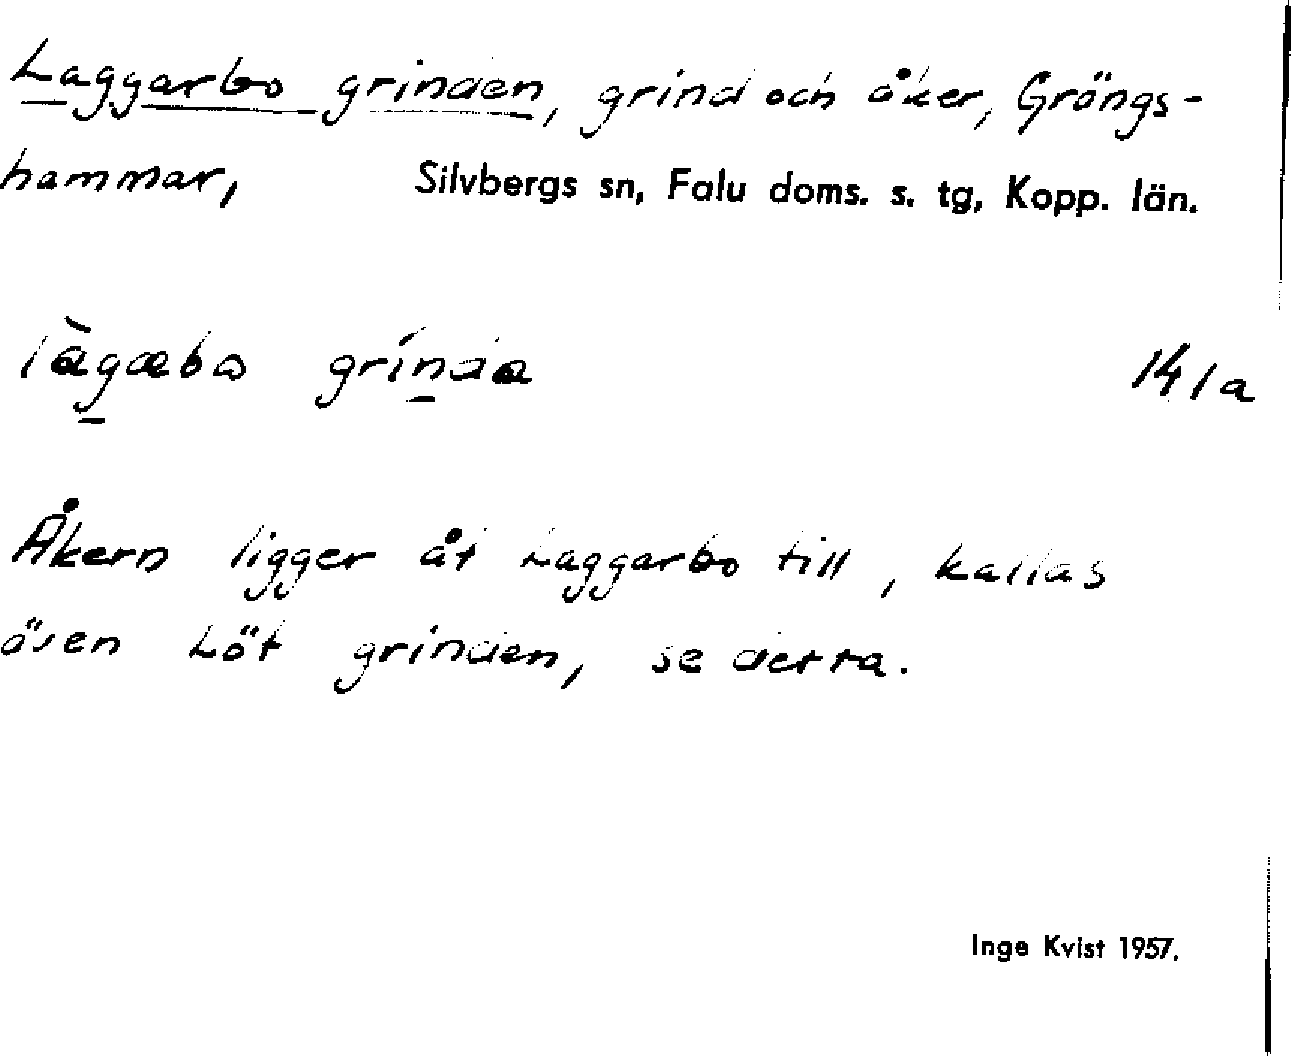 Laggarbo grinden, grind och åker, Gröngs-
hammar, Silvbergs sn, Falu doms. s. tg, Kopp. län.
làgæbω grínda 141a
Åkern ligger åt Laggarbo till, kallas
även Löt grinden, se detta.
Inge Kvist 1957.